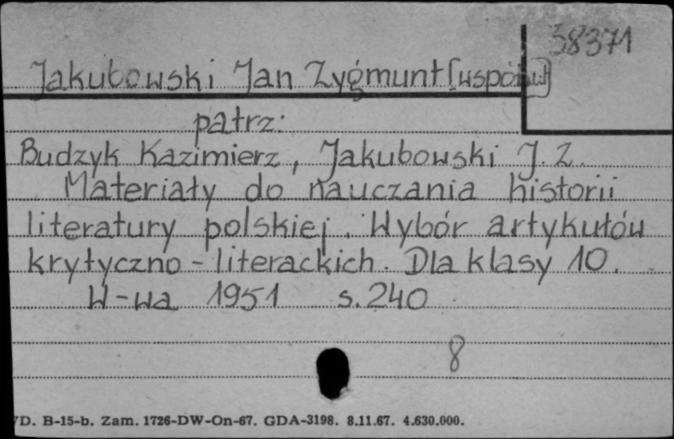 58371
Jakubowski Jan Zygmunt [współaut]
patrz:
Budzyk Kazimierz, Jakubowski J. Z.
Materiały do nauczania historii
literatury polskiej. Wybór artykułów
krytyczno-literackich. Dla klasy 10.
W-wa 1951 s. 240
8
D. B-15-b. Zam. 1726-DW-On-67. GDA-3198. 8.11.67. 4.630.000.